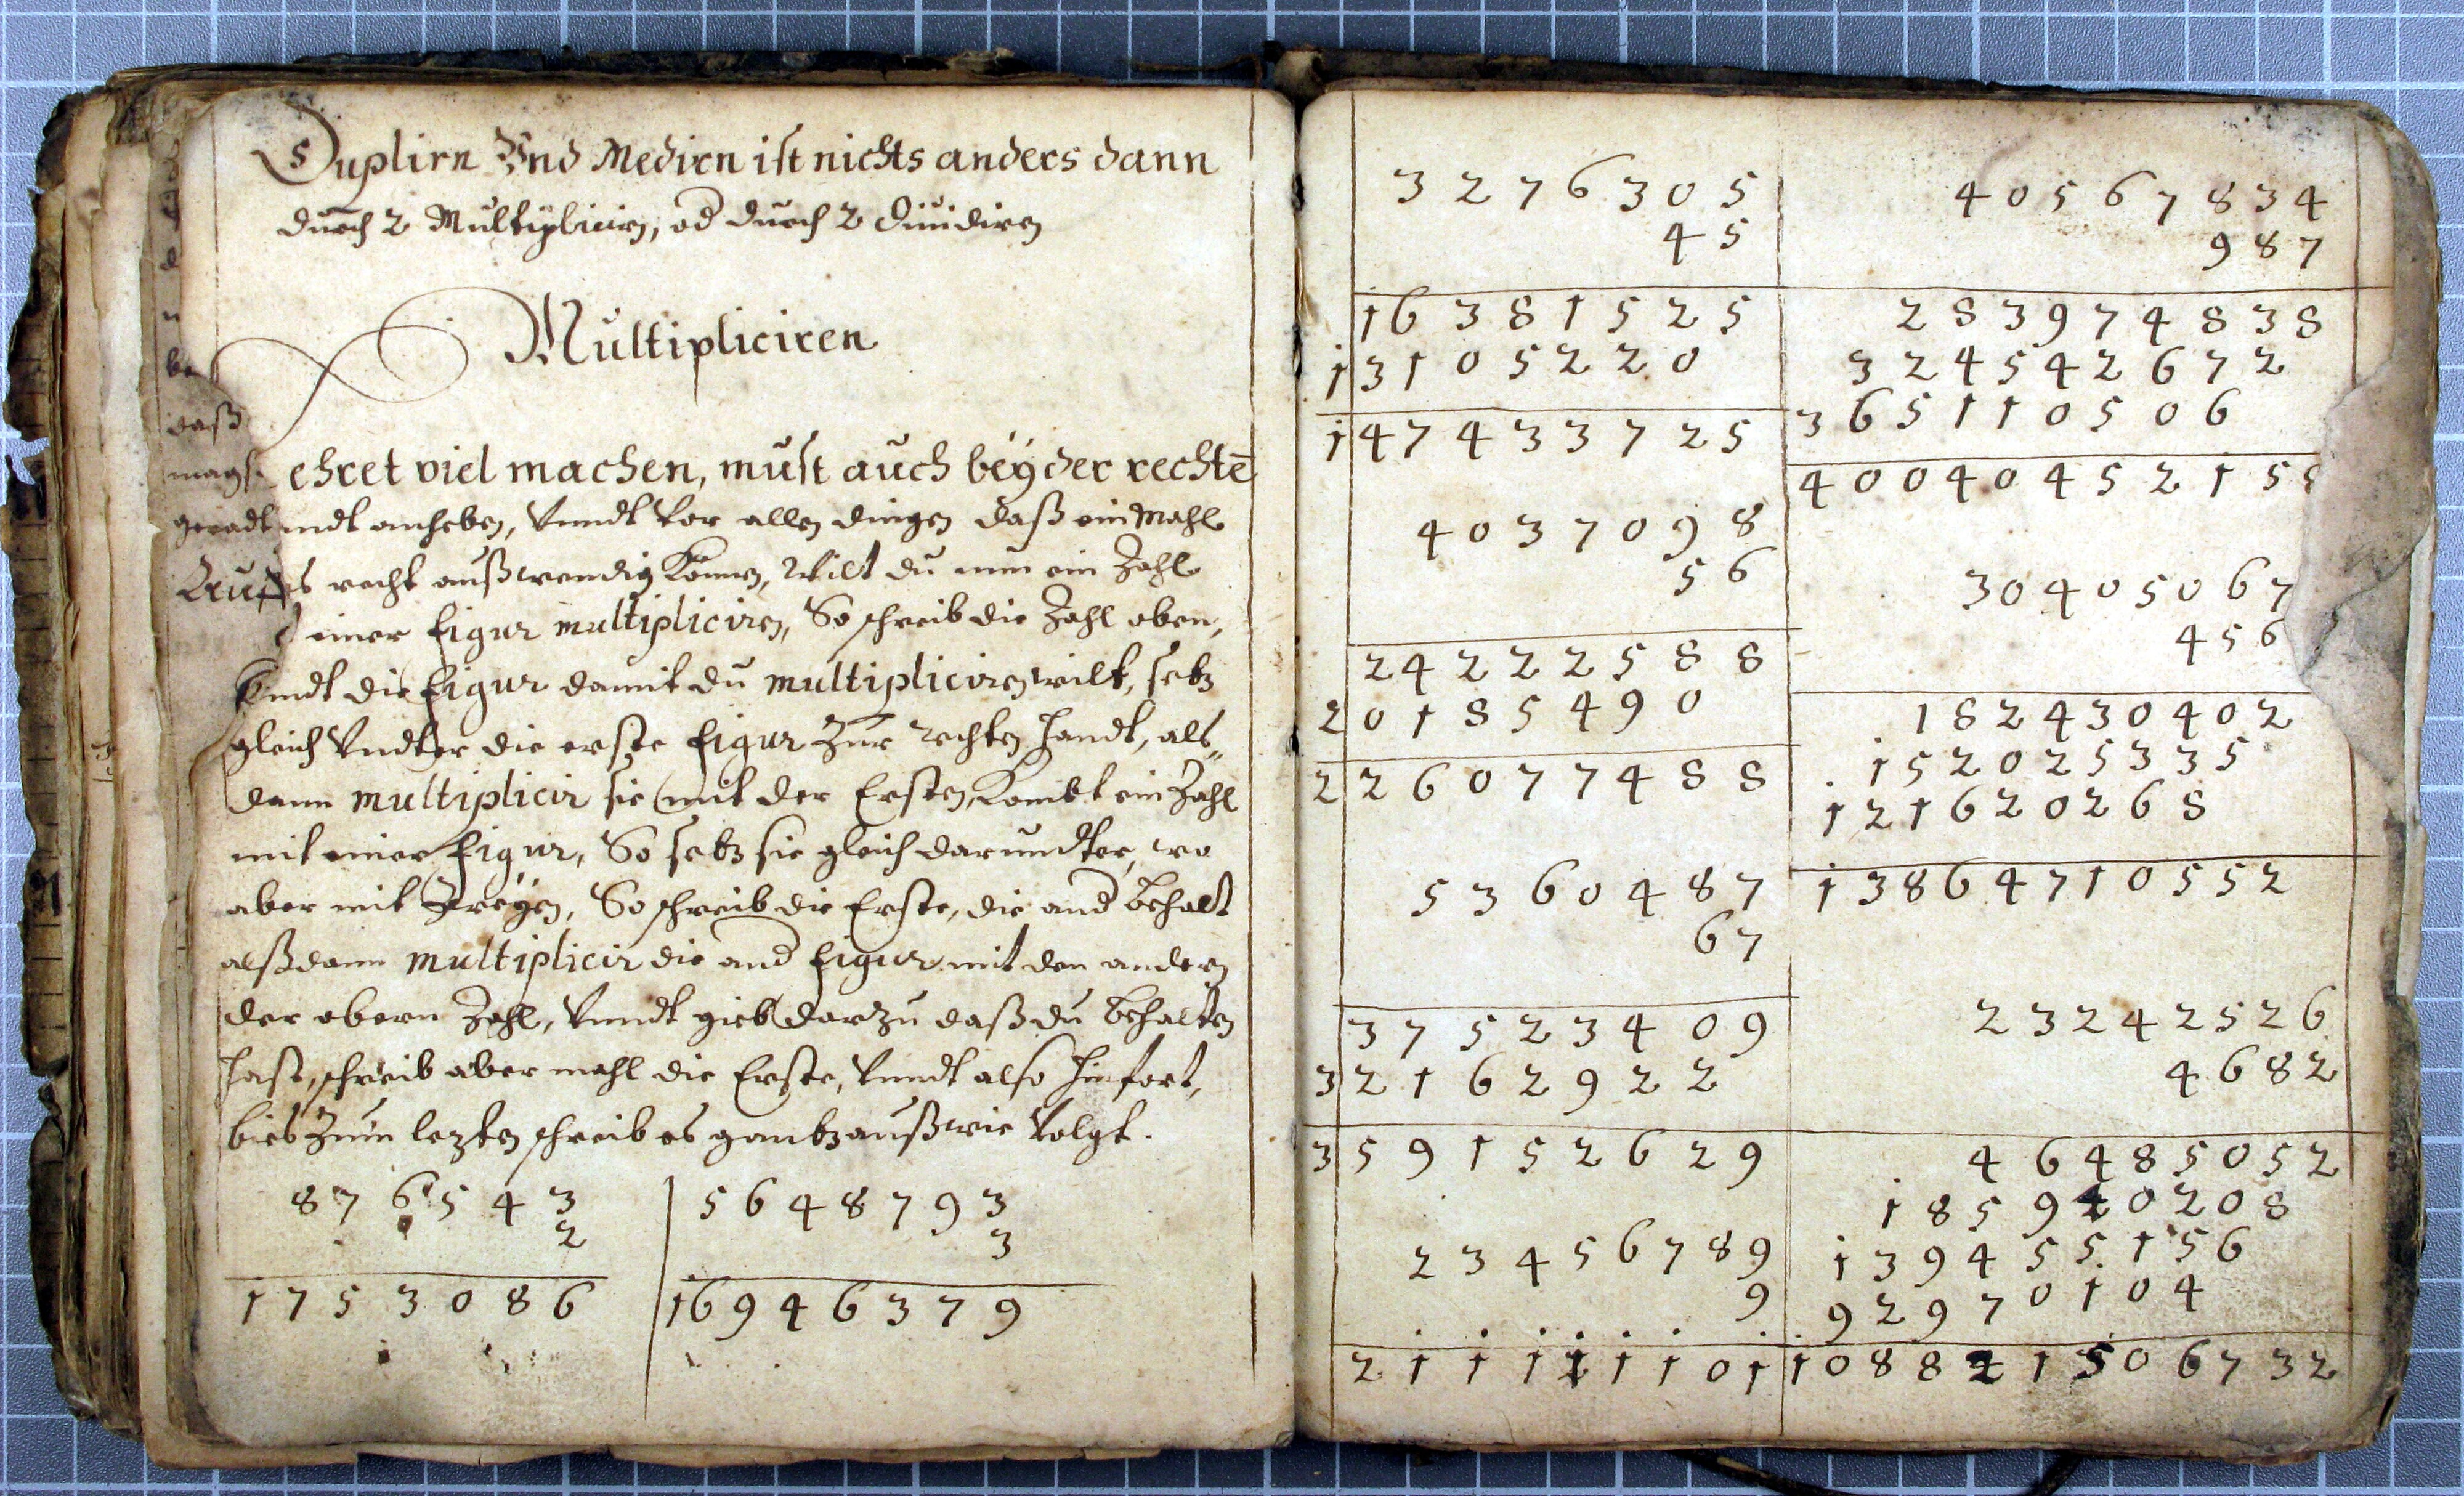 Duplirn Vnd Medirn ist nichts anders dann
durch 2 Multiplicirn, od durch 2 diuidiren
Multipliciren
daß
ehret viel machen, must auch beÿ der rechtē
ndt anheben, Vnndt Vor allen dingen daß ein Mahl
s recht außwendig Können, Wilt du nun ein Zahl
einer figur multipliciren, So schreib die Zahl oben,
Vndt die figur damit du multipliciren wilt, setz
gleich Vndter die erste figur Zur rechten Handt, als„
dann multiplicir sie mit der Ersten, Kombt ein Zahl
mit einer figur, So setz sie gleich darundter, wo
aber mit Zweÿen, So schreib die Erste, die and behalt
alßdann multiplicir die and figur mit den andern
der obern Zahl, Vnndt gieb darzu daß du behalten
hast, schreib aber mahl die Erste, Vnndt also hinfort,
bieß Zum lezten schreib es gantz auß wie Volgt.
8 7 6 5 4 3
2
1 7 5 3 0 8 6
5 6 4 8 7 9 3
3
1 6 9 4 6 3 7 9
3 2 7 6 3 0 5
4 5
1 6 3 8 1 5 2 5
1 3 1 0 5 2 2 0
1 4 7 4 3 3 7 2 5
4 0 3 7 0 9 8
5 6
2 4 2 2 2 5 8 8
2 0 1 8 5 4 9 0
2 2 6 0 7 7 4 8 8
5 3 6 0 4 8 7
6 7
3 7 5 2 3 4 0 9
3 2 1 6 2 9 2 2
3 5 9 1 5 2 6 2 9
2 3 4 5 6 7 8 9
9
2 1 1 1 1 1 1 0 1
4 0 5 6 7 8 3 4
9 8 7
2 8 3 9 7 4 8 3 8
3 2 4 5 4 2 6 7 2
3 6 5 1 1 0 5 0 6
4 0 0 4 0 4 5 2 1 5 8
3 0 4 0 5 0 6 7
4 5 6
1 8 2 4 3 0 4 0 2
1 5 2 0 2 5 3 3 5
1 2 1 6 2 0 2 6 8
1 3 8 6 4 7 1 0 5 5 2
2 3 2 4 2 5 2 6
4 6 8 2
4 6 4 8 5 0 5 2
1 8 5 9 4 0 2 0 8
1 3 9 4 5 5 1 5 6
9 2 9 7 0 1 0 4
1 0 8 8 2 1 5 0 6 7 3 2